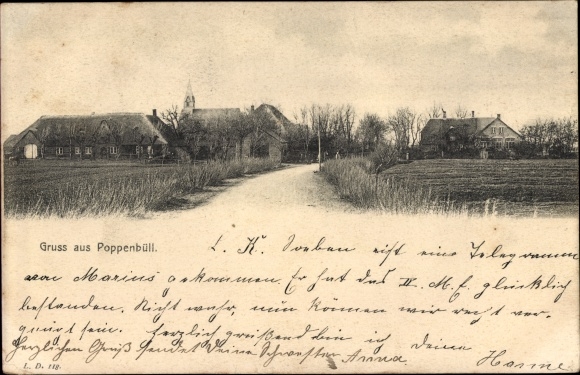 Gruss aus Poppenbüll.
L. K. Soeben ist eine Telegramm
von Marius gekommen. Er hat das II. M. f. glücklich
bestanden. Nicht wahr, nun können wir recht ver-
gnügt sein. Herzlich grüßend bin ich Deine
Hanne
Herzlichen Gruß sendet Deine Schwester Anna
L. D. 112.